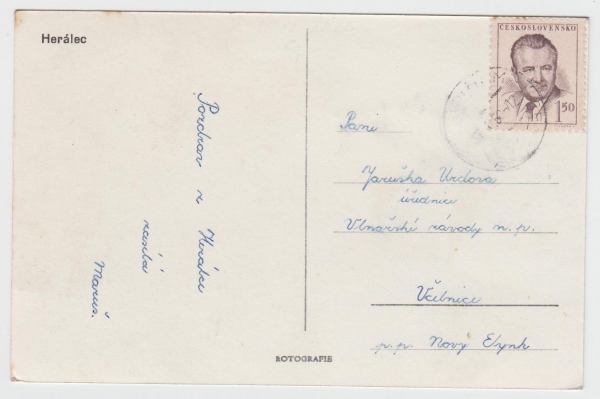 Herálec
Pozdrav z Herálce
zasílá
Maruš.
ČESKOSLOVENSKO
1.50
Paní
Jaruška Urdova
úřednice
Vlnařské závody n.p.
Včelnice
p.p. Nový Etynk
ROTOGRAFIE